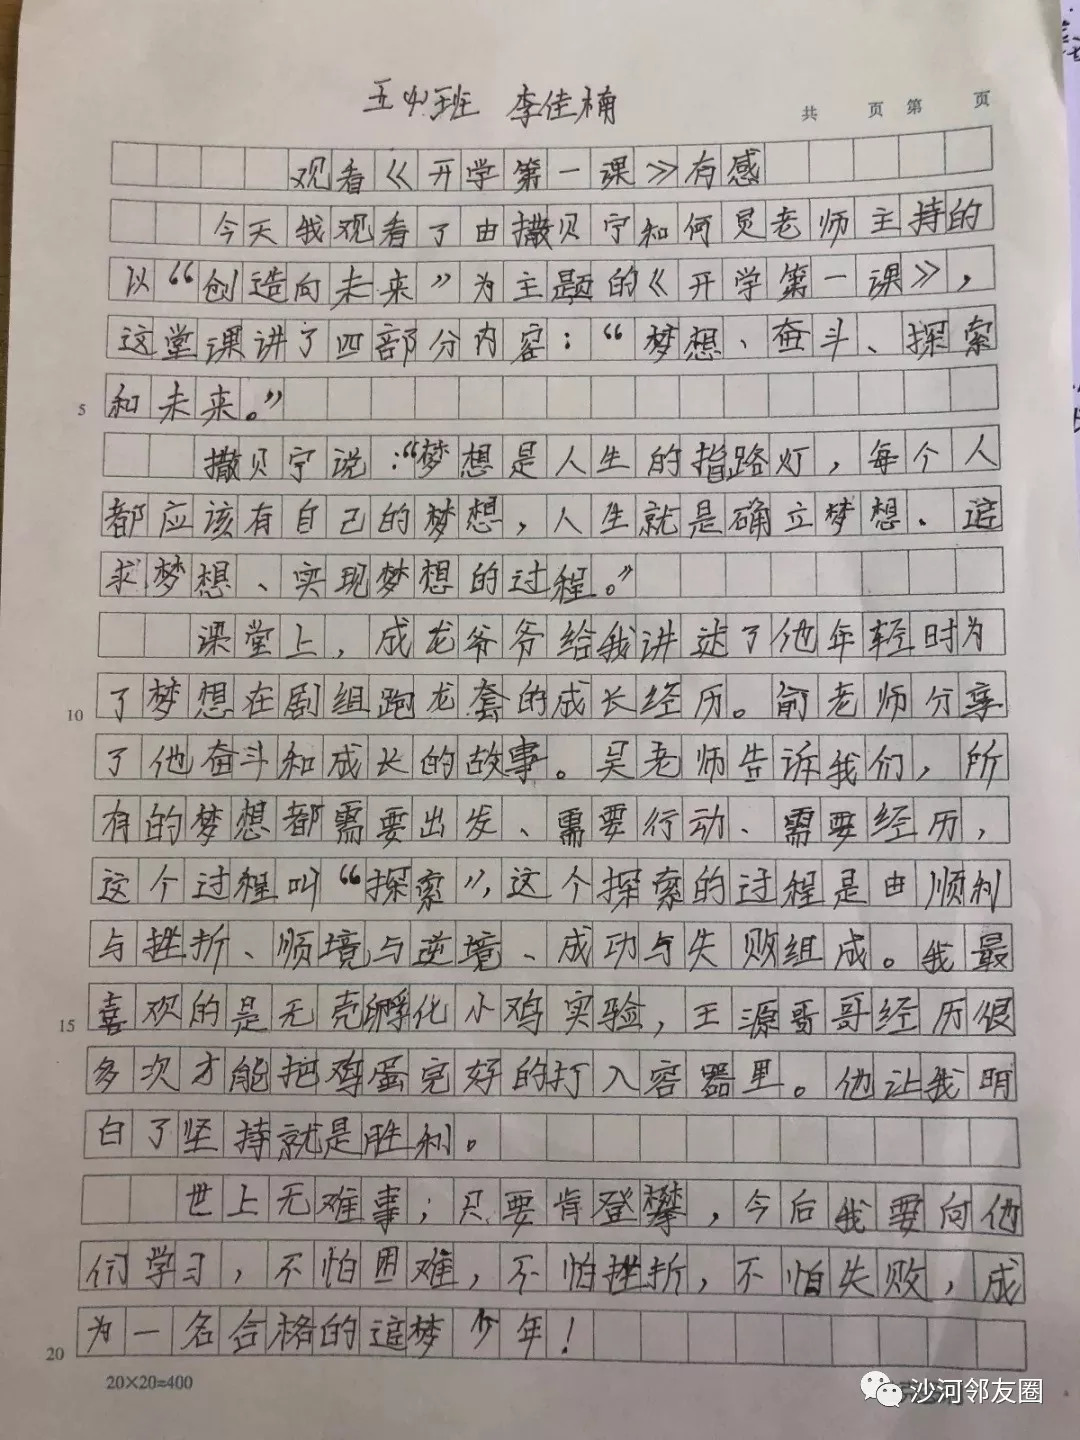 五(4)班 李佳楠
共 页 第 页
观看《开学第一课》有感
今天我观看了由撒贝宁和何炅老师主持的
以“创造向未来”为主题的《开学第一课》,
这堂课讲了四部分内容:“梦想、奋斗、探索
5 和未来。”
撒贝宁说:“梦想是人生的指路灯,每个人
都应该有自己的梦想,人生就是确立梦想、追
求梦想、实现梦想的过程。”
课堂上,成龙爷爷给我讲述了他年轻时为
10 了梦想在剧组跑龙套的成长经历。俞老师分享
了他奋斗和成长的故事。吴老师告诉我们,所
有的梦想都需要出发、需要行动、需要经历,
这个过程叫“探索”,这个探索的过程是由顺利
与挫折、顺境与逆境、成功与失败组成。我最
15 喜欢的是无壳孵化小鸡实验,王源哥哥经历很
多次才能把鸡蛋完好的打入容器里。他让我明
白了坚持就是胜利。
世上无难事;只要肯登攀,今后我要向他
们学习,不怕困难,不怕挫折,不怕失败,成
20 为一名合格的追梦少年!
20×20=400
沙河邻友圈